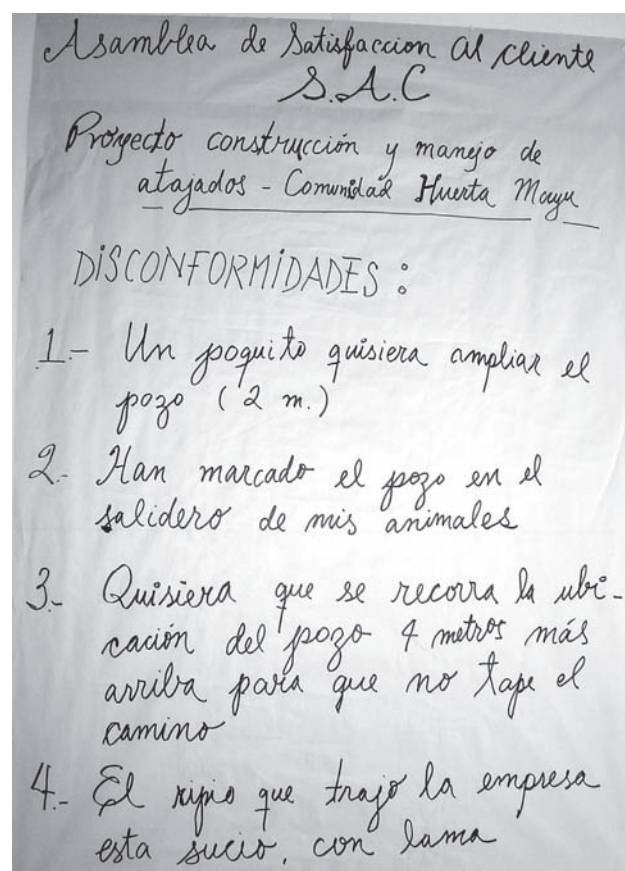 Asamblea de Satisfaccion al cliente
S.A.C
Proyecto construcción y manejo de
atajados - Comunidad Huerta Mayu
DISCONFORMIDADES :
1.- Un poquito quisiera ampliar el
pozo (2 m.)
2.- Han marcado el pozo en el
salidero de mis animales
3.- Quisiera que se recorra la ubi-
cación del pozo 4 metros más
arriba para que no tape el
camino
4.- El ripio que trajo la empresa
esta sucio, con lama